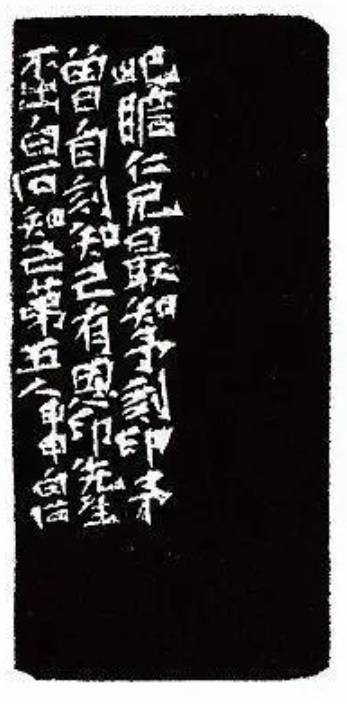 屺瞻仁兄最知予刻印予
曾自刻知己有恩印先生
不出白石知己第五人 甲申白石